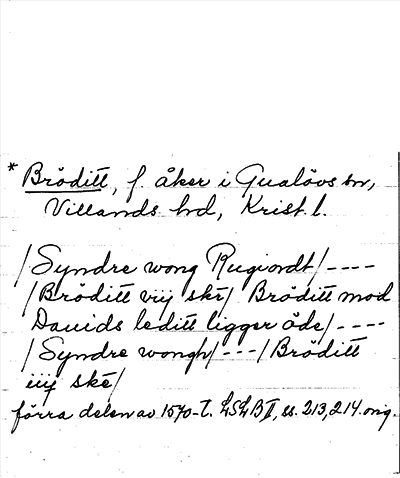 * Bröditt, f. åker i Gualövs sn,
Villands hd, Krist. l.
/Syndre wong Rugiordt/----
/Bröditt vij ske/ Bröditt mod
Dauids leditt ligger öde/----
/Syndre wongh/---/Bröditt
iiij ske/
förra delen av 1570-t. LSLB II, ss. 213, 214. orig.